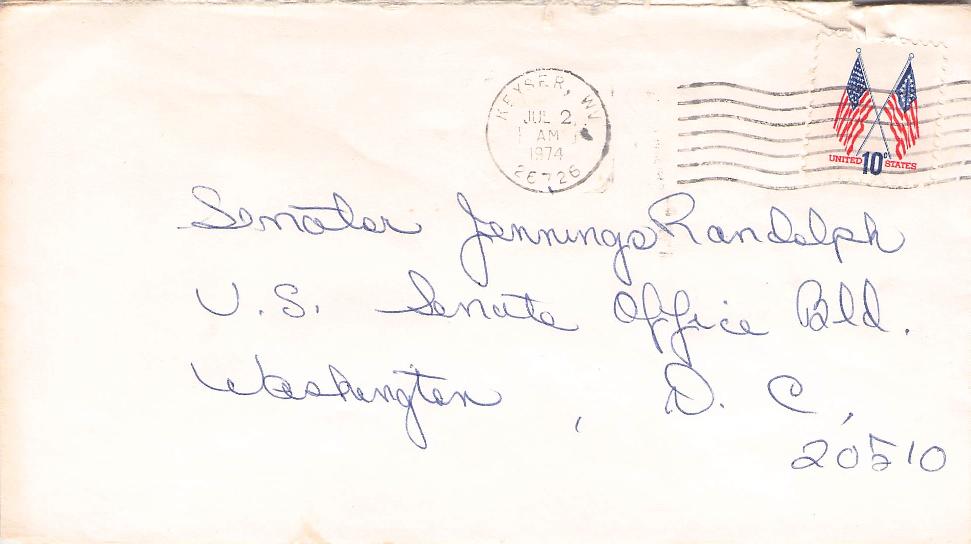 KEYSER, WV.
JUL 2
AM
1974
26726
UNITED 10c STATES
Senator Jennings Randolph
U.S. Senate Office Bld.
Washington, D.C,
20510